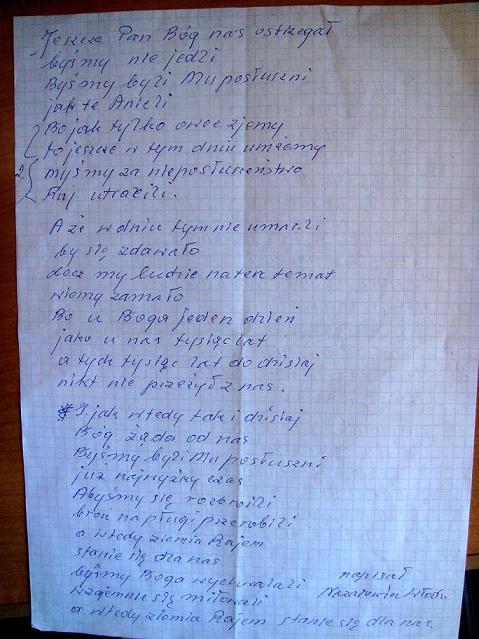 Jeszcze Pan Bóg nas ostrzegał
byśmy nie jedli
Byśmy byli Mu posłuszni
jak te Anieli
Bo jak tylko owoc zjemy
to jeszcze w tym dniu umżemy
2 myśmy za nieposłuszeństwo
Raj utracili.
A że w dniu tym nie umarli
by się zdawało
lecz my ludzie na ten temat
wiemy zamało
Bo u Boga jeden dzień
jako u nas tysiąc lat
a tych tysiąc lat do dzisiaj
nikt nie przeżył z nas.
I jak wtedy tak i dzisiaj
Bóg żąda od nas
Byśmy byli Mu posłuszni
już najwyższy czas
Abyśmy się rozbroili
broń na pługi przerobili
a wtedy ziemia Rajem
stanie się dla nas
byśmy Boga wychwalali
wzajemnie się miłowali
a wtedy ziemia Rajem stanie się dla nas.
napisał